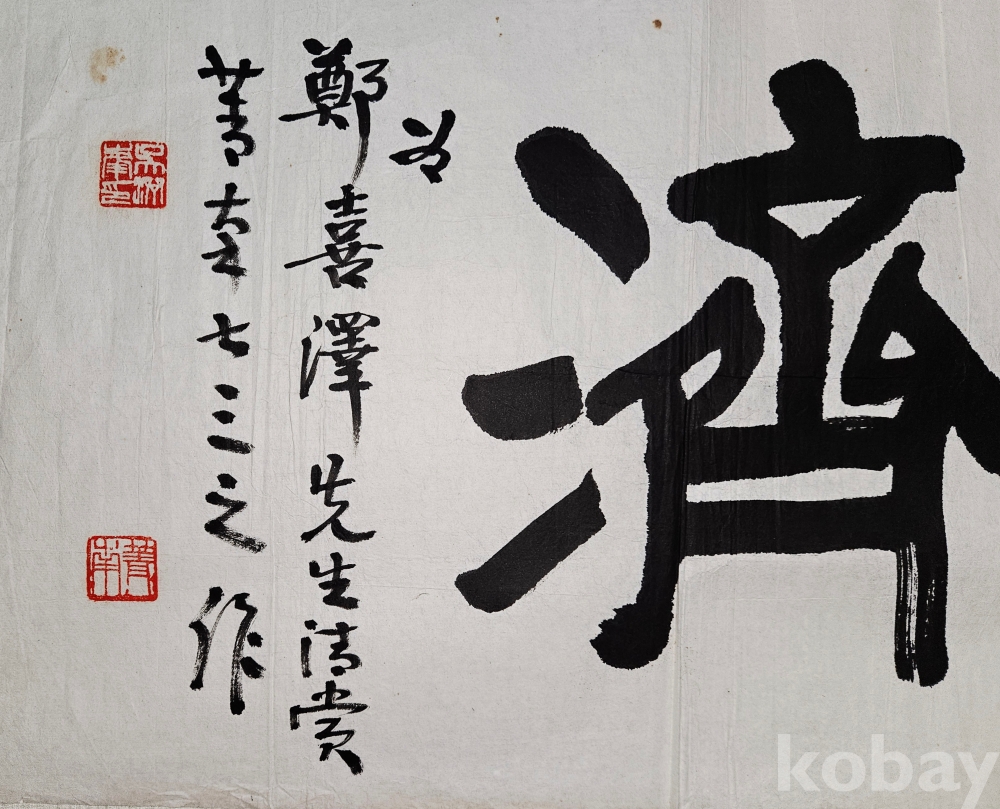 濟
為
鄭喜澤先生清賞
菁七三之作
kobay